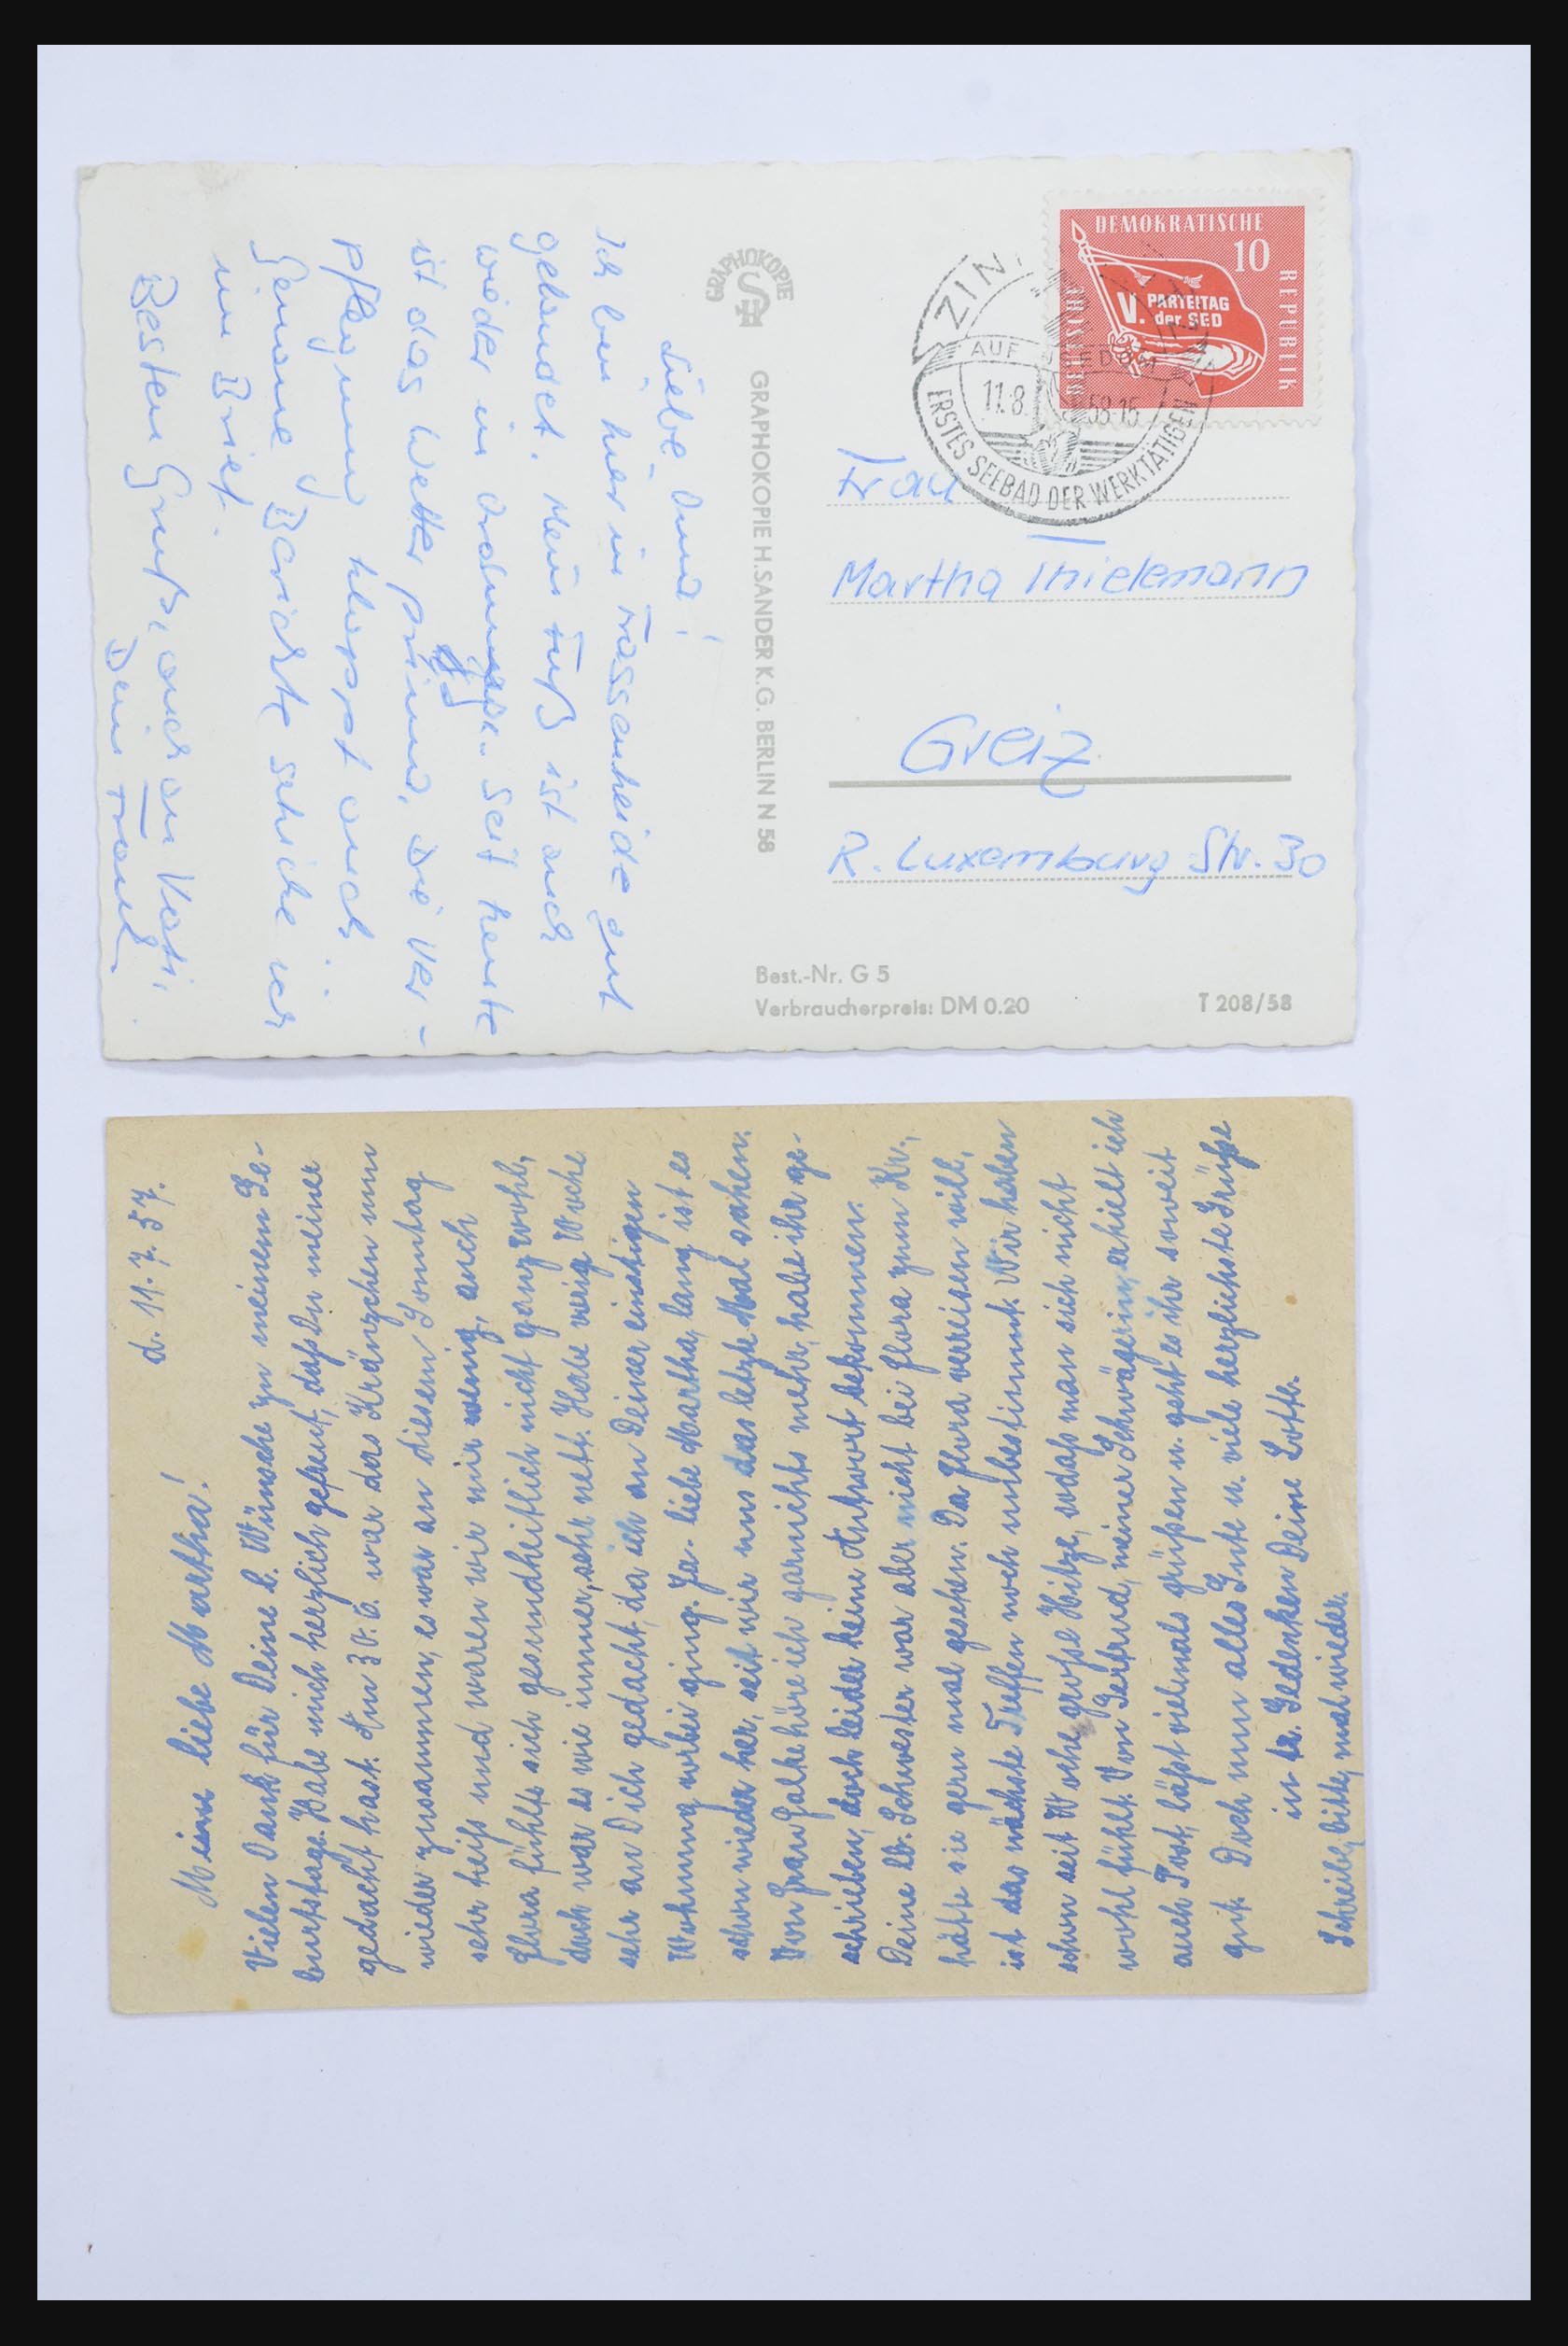 DEMOKRATISCHE
REPUBLIK
10
V. PARTEITAG
der SED
ZIN
AUF USEDOM
11.8. 58-15
ERSTES SEEBAD DER WERKTÄTIGEN
GRAPHOKOPIE
GRAPHOKOPIE H.SANDER K.G. BERLIN N 58
Frau
Martha Thielemann
Greiz
R. Luxemburg Str. 30
Best.-Nr. G 5
Verbraucherpreis: DM 0.20
T 208/58
Liebe Oma!
Ich bin hier in Trassenheide gut
gelandet. Mein Fuß ist auch
wieder in Ordnung. Seit heute
ist das Wetter prima, die Ver-
pflegung kloppt auch.
Genaue Berichte schicke ich
im Brief.
Besten Gruß, auch an Vati,
Dein Frank
d. 11.7.57.
Meine liebe Martha!
Vielen Dank für Deine l. Wünsche zu meinem Ge-
burtstage. Habe mich herzlich gefreut, daß Du meiner
gedacht hast. Am 30.6. war das Kränzchen nun
wieder zusammen, es war an diesem Sonntag
sehr heiß und waren wir nur wenig, auch
Flora fühlte sich gesundheitlich nicht ganz wohl,
doch war es wie immer, sehr nett. Habe vorig Woche
sehr an Dich gedacht, da ich an Deiner einstigen
Wohnung vorbei ging. Ja - liebe Martha, lang ist es
schon wieder her, seit wir uns das letzte Mal sahen.
Von Frau Falke höre ich garnichts mehr, habe ihr ge-
schrieben, doch leider keine Antwort bekommen.
Deine lb. Schwester war aber nicht bei Flora zum Kr.,
hätte sie gern mal gesehen. Da Flora verreisen will,
ist das nächste Treffen noch unbestimmt. Wir haben
schon seit Woche große Hitze, sodaß man sich nicht
wohl fühlt. Von Gertrud, meiner Schwägerin, erhielt ich
auch Post, läßt vielmals grüßen u. geht es ihr soweit
gut. Doch nun alles Gute u. viele herzlichste Grüße
in tr. Gedenken Deine Lotte.
Schreibe, bitte, mal wieder.